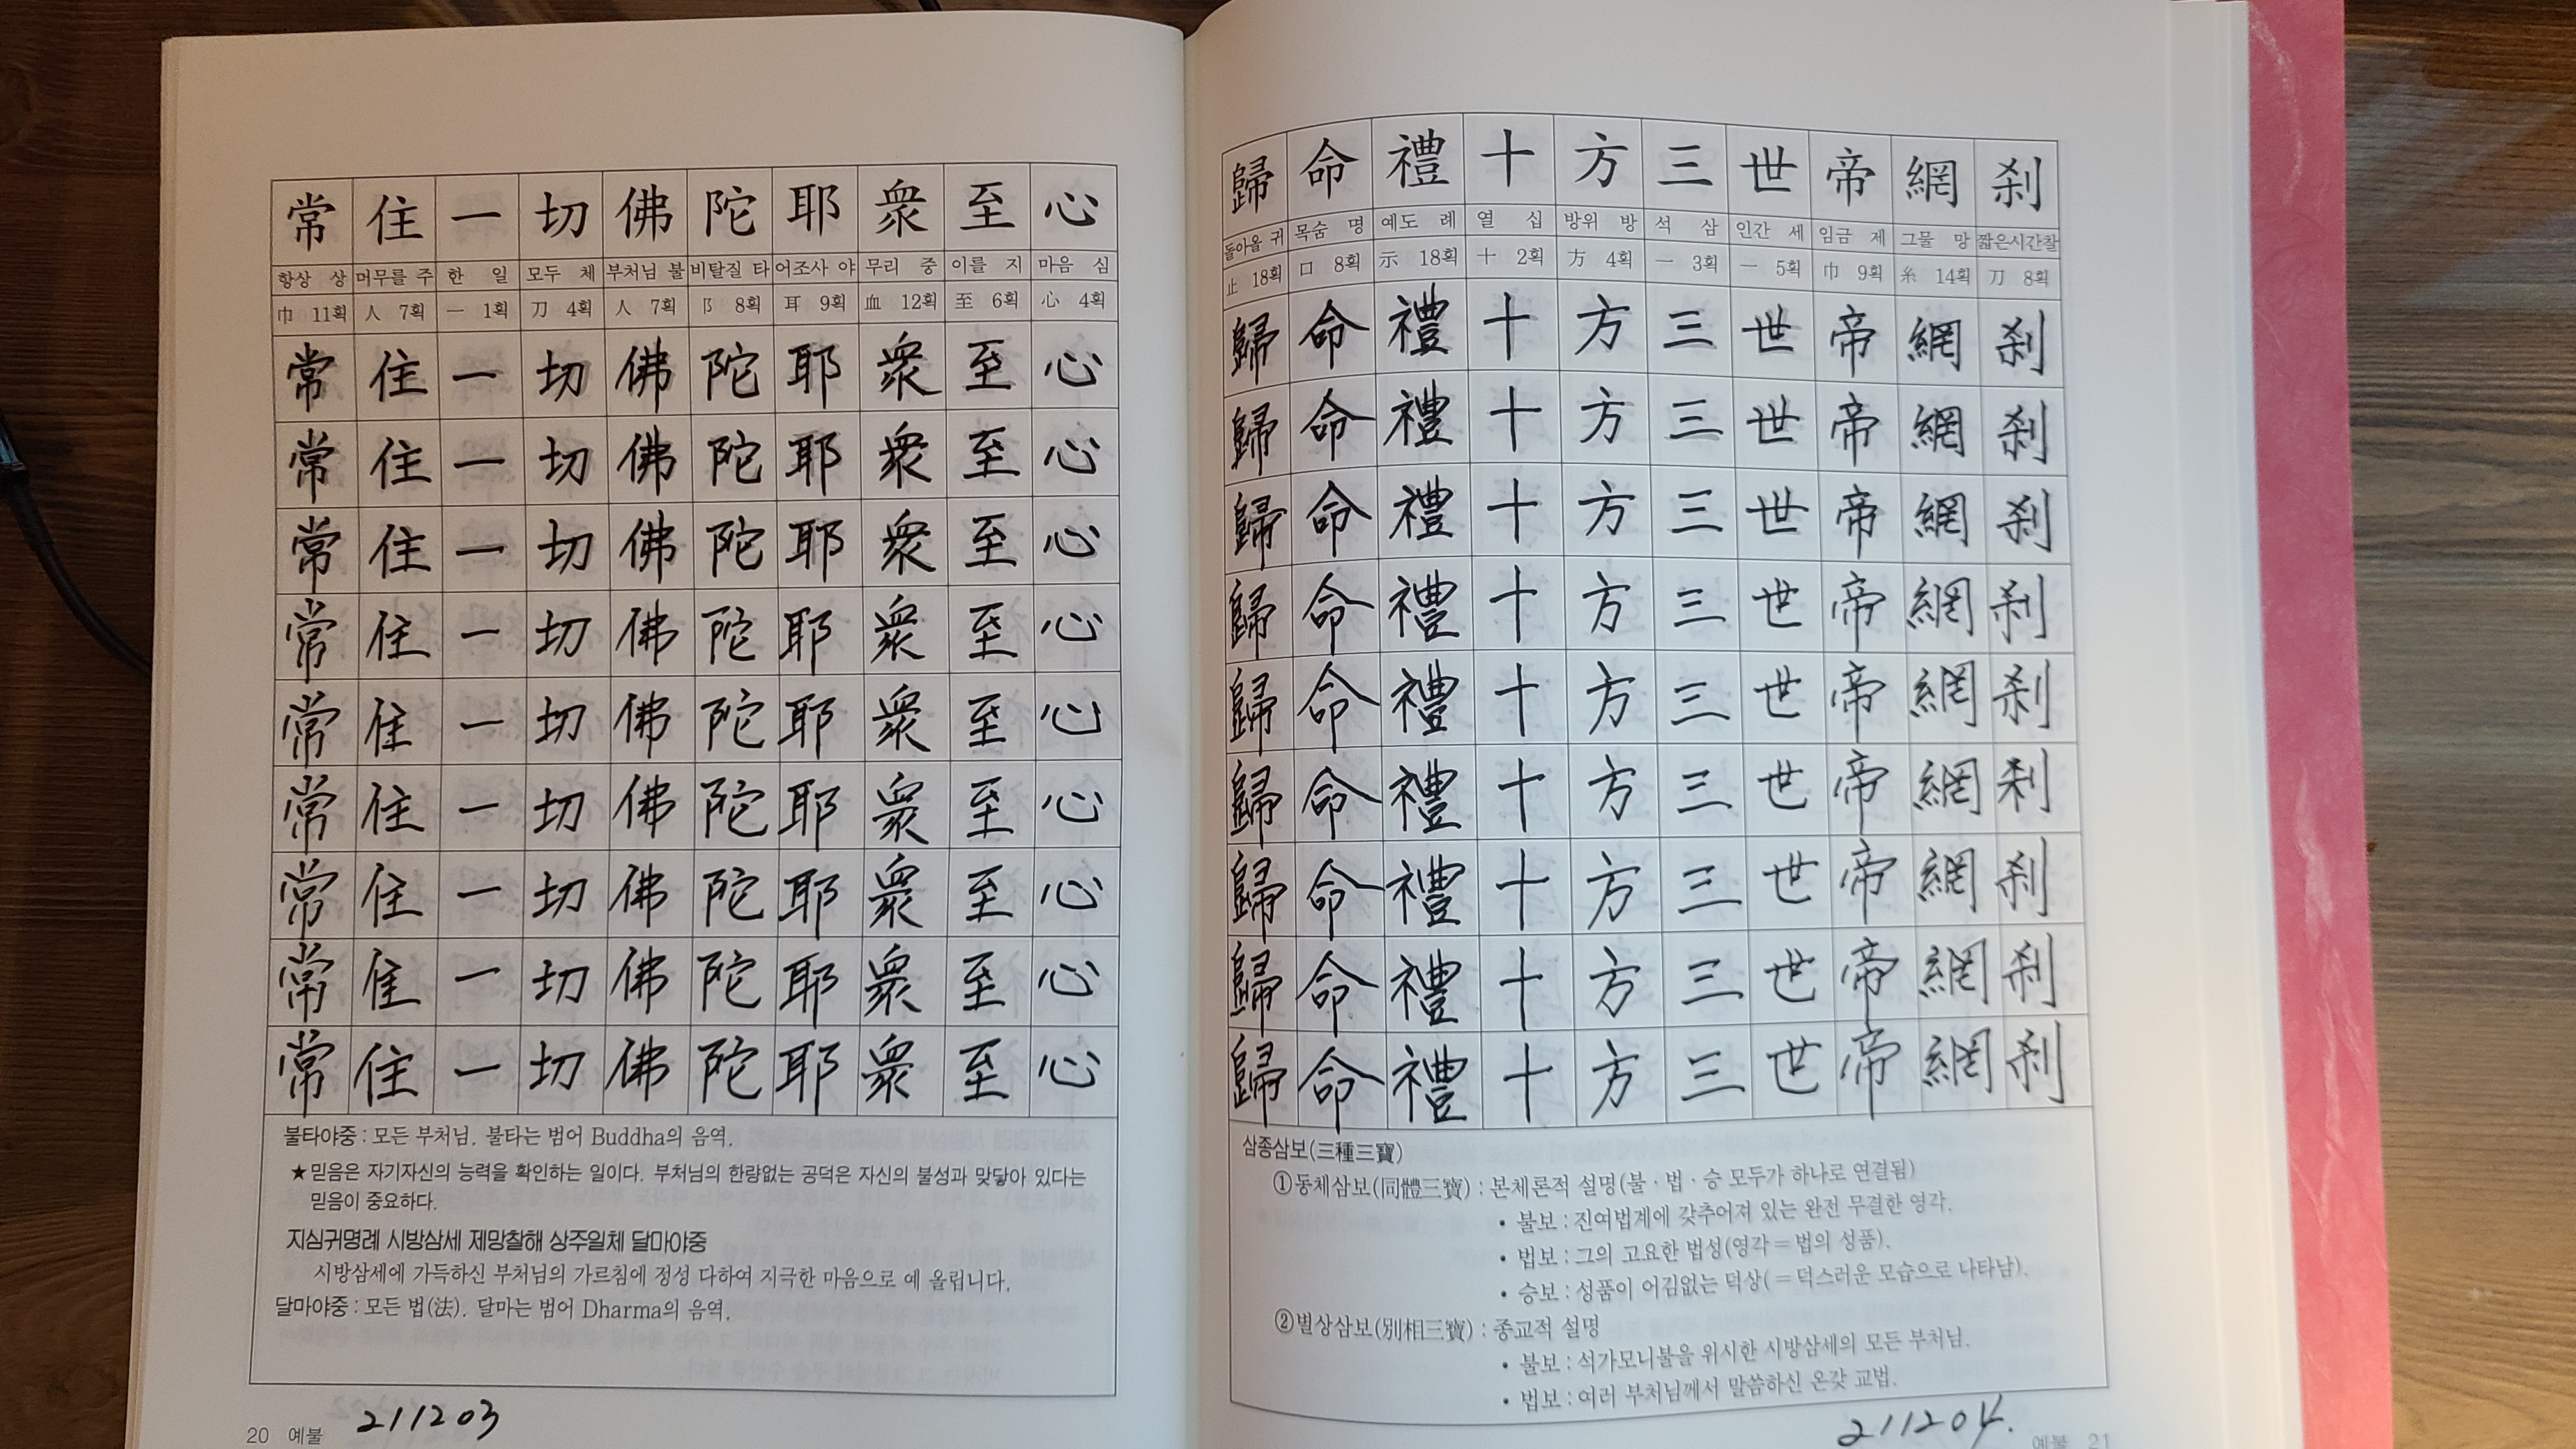 常 住 一 切 佛 陀 耶 衆 至 心
항상 상 머무를 주 한 일 모두 체 부처님 불 비탈질 타 어조사 야 무리 중 이를 지 마음 심
巾 11획 人 7획 一 1획 刀 4획 人 7획 阝 8획 耳 9획 血 12획 至 6획 心 4획
常 住 一 切 佛 陀 耶 衆 至 心
常 住 一 切 佛 陀 耶 衆 至 心
常 住 一 切 佛 陀 耶 衆 至 心
常 住 一 切 佛 陀 耶 衆 至 心
常 住 一 切 佛 陀 耶 衆 至 心
常 住 一 切 佛 陀 耶 衆 至 心
常 住 一 切 佛 陀 耶 衆 至 心
常 住 一 切 佛 陀 耶 衆 至 心
常 住 一 切 佛 陀 耶 衆 至 心
불타야중 : 모든 부처님. 불타는 범어 Buddha의 음역.
★믿음은 자기자신의 능력을 확인하는 일이다. 부처님의 한량없는 공덕은 자신의 불성과 맞닿아 있다는
믿음이 중요하다.
지심귀명례 시방삼세 제망찰해 상주일체 달마야중
시방삼세에 가득하신 부처님의 가르침에 정성 다하여 지극한 마음으로 예 올립니다.
달마야중 : 모든 법(法). 달마는 범어 Dharma의 음역.
20 예불 211203
歸 命 禮 十 方 三 世 帝 網 刹
돌아올 귀 목숨 명 예도 례 열 십 방위 방 석 삼 인간 세 임금 제 그물 망 짧은시간찰
止 18획 口 8획 示 18획 十 2획 方 4획 一 3획 一 5획 巾 9획 糸 14획 刀 8획
歸 命 禮 十 方 三 世 帝 網 刹
歸 命 禮 十 方 三 世 帝 網 刹
歸 命 禮 十 方 三 世 帝 網 刹
歸 命 禮 十 方 三 世 帝 網 刹
歸 命 禮 十 方 三 世 帝 網 刹
歸 命 禮 十 方 三 世 帝 網 刹
歸 命 禮 十 方 三 世 帝 網 刹
歸 命 禮 十 方 三 世 帝 網 刹
歸 命 禮 十 方 三 世 帝 網 刹
삼종삼보(三種三寶)
①동체삼보(同體三寶) : 본체론적 설명(불·법·승 모두가 하나로 연결됨)
• 불보 : 진여법계에 갖추어져 있는 완전 무결한 영각.
• 법보 : 그의 고요한 법성(영각=법의 성품).
• 승보 : 성품이 어김없는 덕상(=덕스러운 모습으로 나타남).
②별상삼보(別相三寶) : 종교적 설명
• 불보 : 석가모니불을 위시한 시방삼세의 모든 부처님.
• 법보 : 여러 부처님께서 말씀하신 온갖 교법.
211204. 예불 21